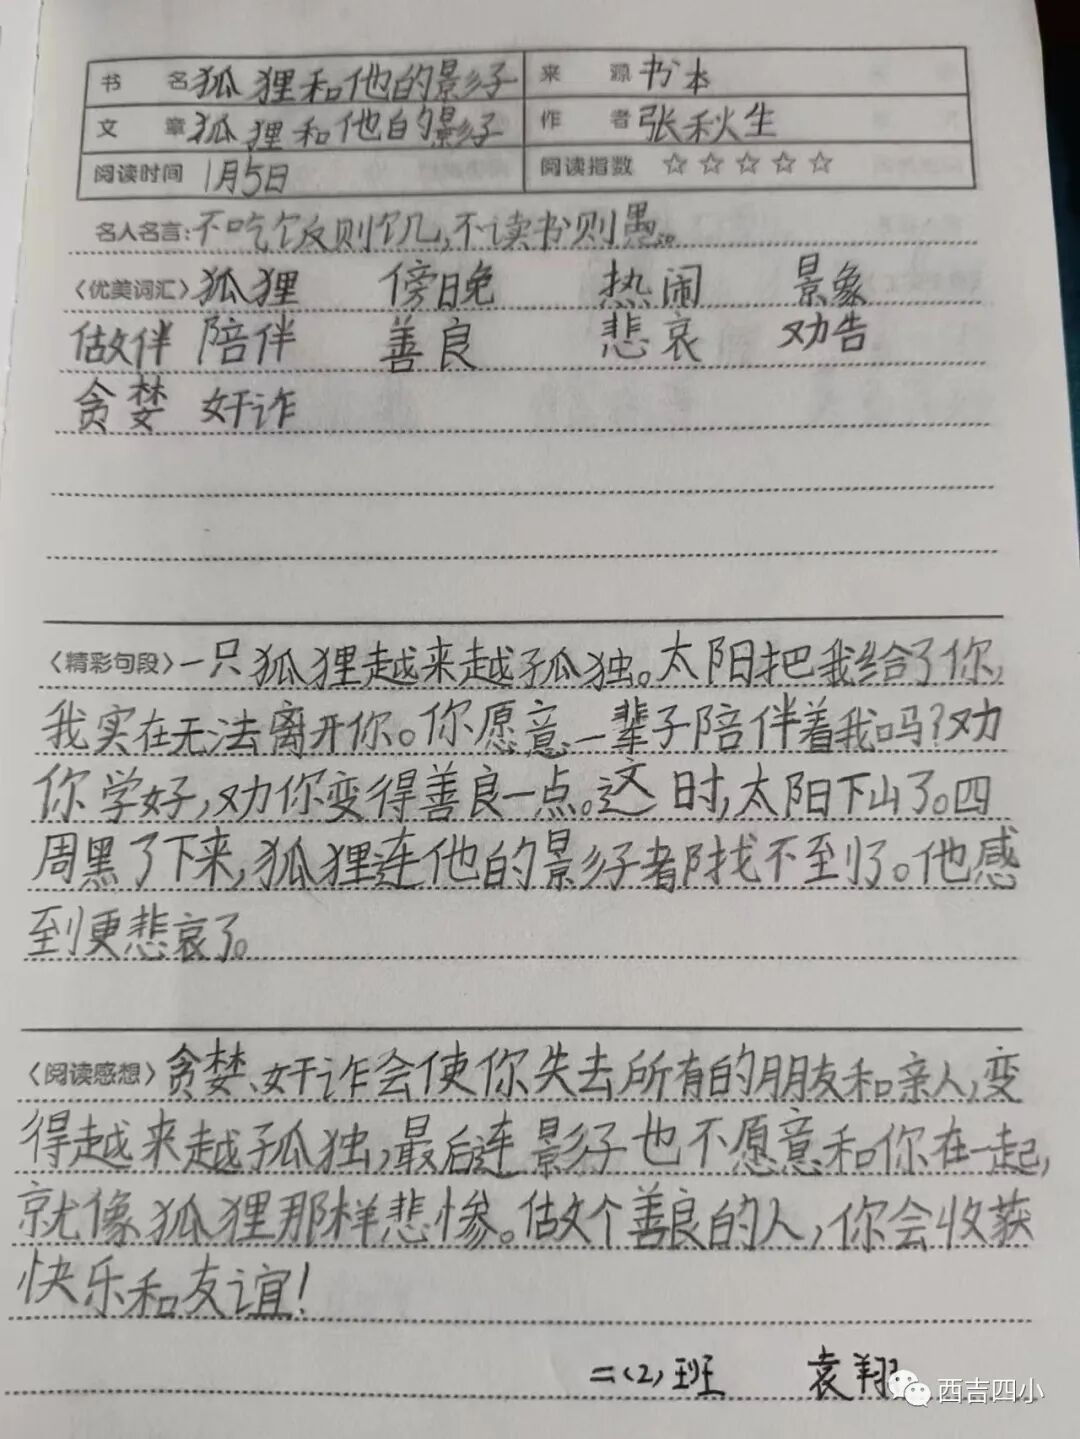 书名 狐狸和他的影子 来源 书本
文章 狐狸和他的影子 作者 张秋生
阅读时间 1月5日 阅读指数 ☆☆☆☆☆
名人名言:不吃饭则饥,不读书则愚。
〈优美词汇〉狐狸 傍晚 热闹 景象
做伴 陪伴 善良 悲哀 劝告
贪婪 奸诈
〈精彩句段〉一只狐狸越来越孤独。太阳把我给了你,
我实在无法离开你。你愿意一辈子陪伴着我吗?劝
你学好,劝你变得善良一点。这时,太阳下山了。四
周黑了下来,狐狸连他的影子都找不到了。他感
到更悲哀了。
〈阅读感想〉贪婪、奸诈会使你失去所有的朋友和亲人,变
得越来越孤独,最后连影子也不愿意和你在一起,
就像狐狸那样悲惨。做个善良的人,你会收获
快乐和友谊!
二(2)班 袁翔
西吉四小